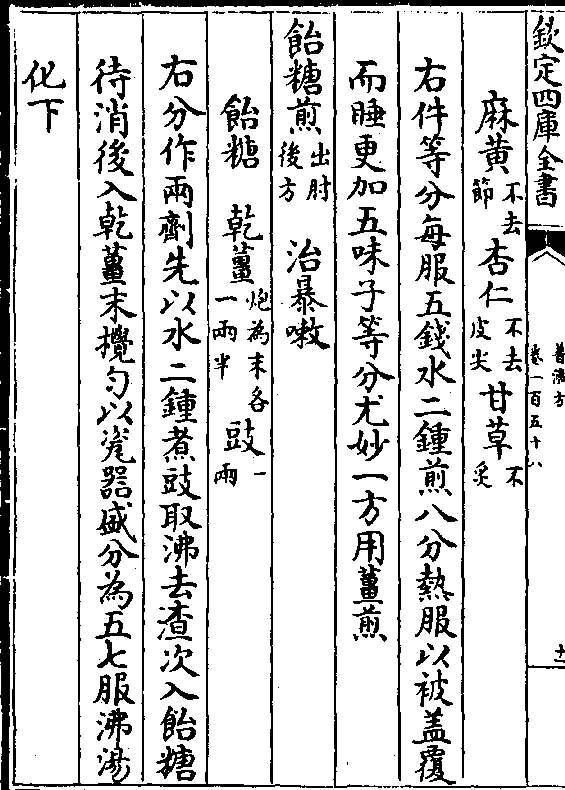 欽定四庫全書
普濟方
卷一百五十八
十一
麻黄不去節杏仁不去皮尖甘草不炙
右件等分每服五錢水二鍾煎八分熱服以被盖覆
而睡更加五味子等分尤妙一方用薑煎
飴糖煎出肘後方治暴嗽
飴糖乾薑炮為末各一兩半豉一兩
右分作兩劑先以水二鍾煮豉取沸去渣次入飴糖
待消後入乾薑末攪勻以瓷器盛分為五七服沸湯
化下